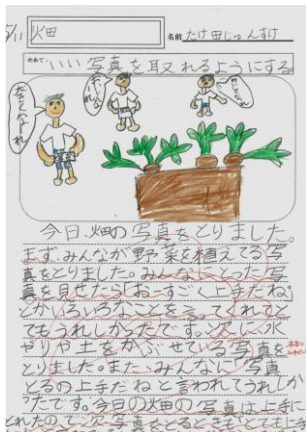 5/11 畑田
名前 たけ田じゅんすけ
めあて:いい写真を取れるようにする
今日、畑の写真をとりました。
まず、みんなが野菜を植えてる写
真をとりました。みんなにとった写
真を見せたら「おーすごく上手だね」
とかいろいろなことを言ってくれてと
てもうれしかったです。次に水
やりや土をかぶせている写真を
とりました。また、みんなに「写真
とるの上手だねと言われてうれしか
ったです。今日の畑の写真は上手に
とれたので、次写真をとるときもとても